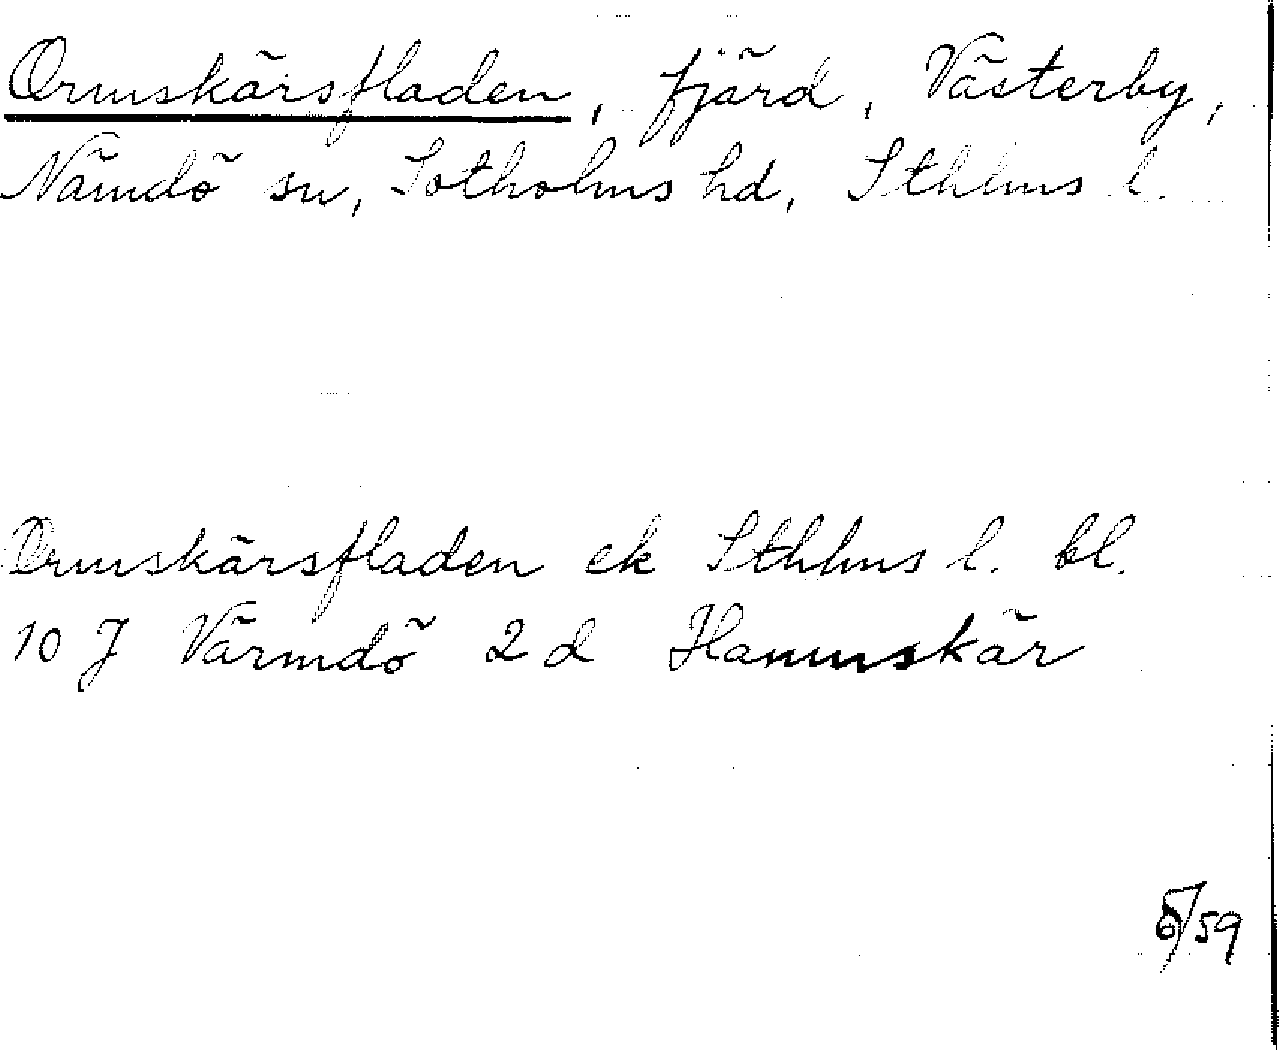 Ormskärsfladen, fjärd, Västerby,
Nämdö sn, Sotholms hd, Sthlms l.
Ormskärsfladen ek Sthlms l. bl.
10 J Värmdö 2 d Hamnskär
/59